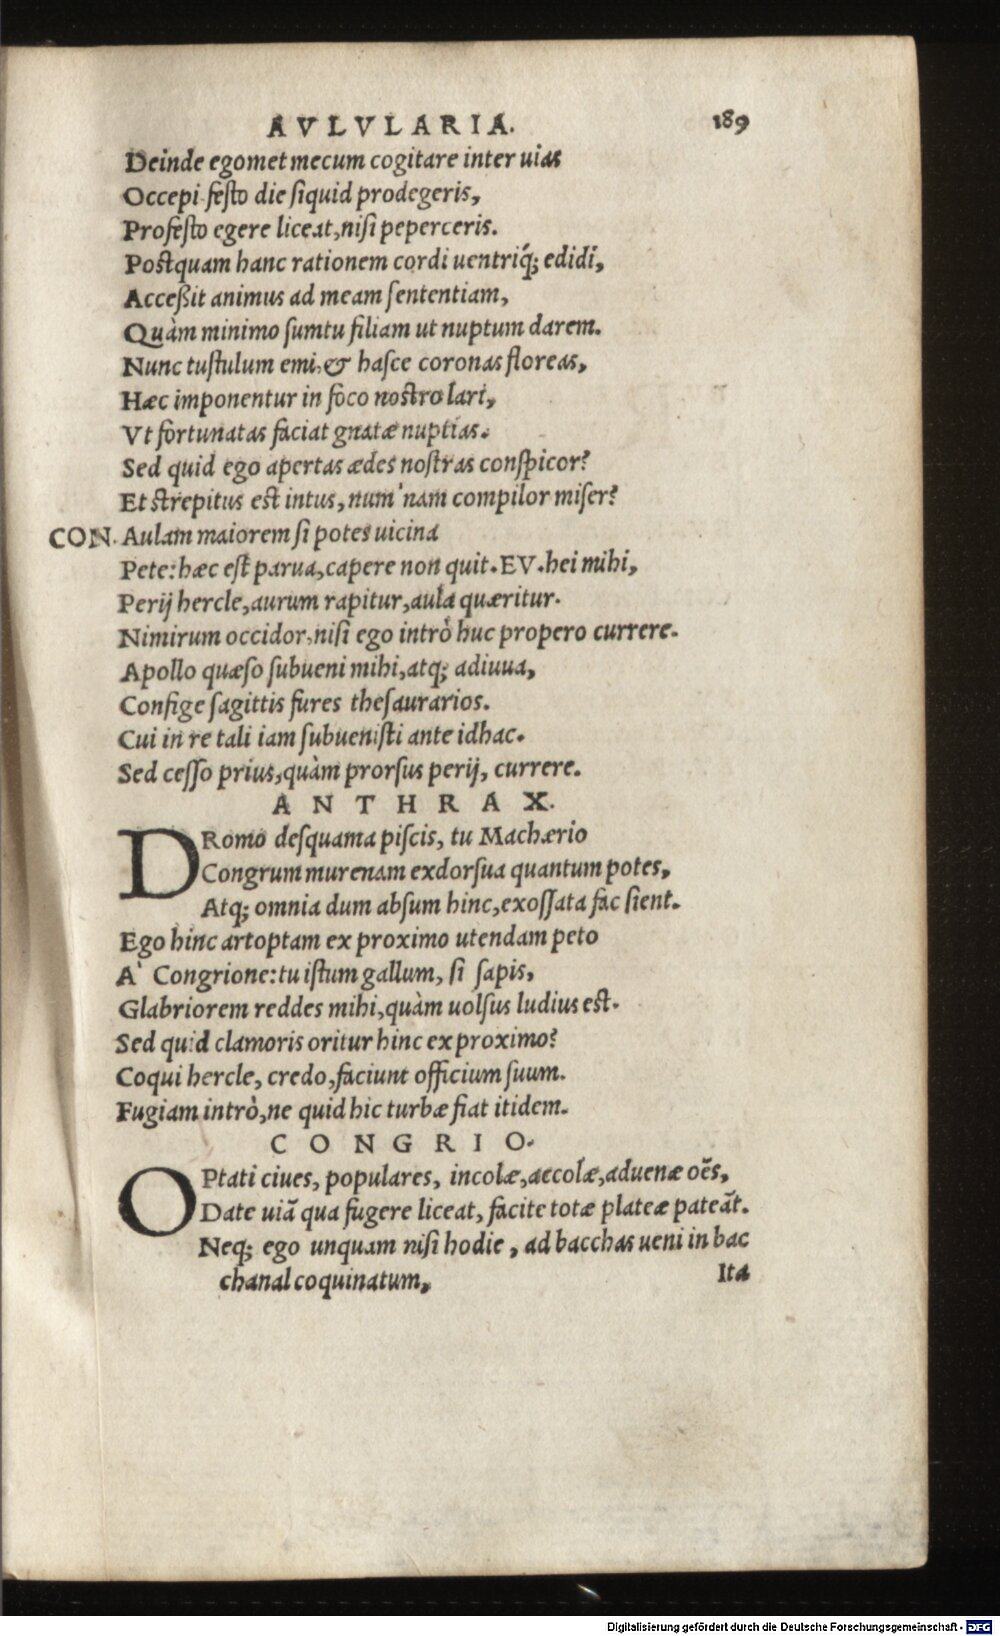 AVLVLARIA. 189
Deinde egomet mecum cogitare inter uias
Occepi festo die siquid prodegeris,
Profesto egere liceat, nisi peperceris.
Postquam hanc rationem cordi uentriq́; edidi,
Acceßit animus ad meam sententiam,
Quàm minimo sumtu filiam ut nuptum darem.
Nunc tustulum emi, & hasce coronas floreas,
Hæc imponentur in foco nostro lari,
Vt fortunatas faciat gnatæ nuptias.
Sed quid ego apertas ædes nostras conspicor?
Et strepitus est intus, num'nam compilor miser?
CON. Aulam maiorem si potes uicina
Pete: hæc est parua, capere non quit. EV. hei mihi,
Perij hercle, aurum rapitur, aula quæritur.
Nimirum occidor, nisi ego intrò huc propero currere.
Apollo quæso subueni mihi, atq; adiuua,
Confige sagittis fures thesaurarios.
Cui in re tali iam subuenisti ante idhac.
Sed cesso prius, quàm prorsus perij, currere.
ANTHRAX.
DRomo desquama piscis, tu Machærio
Congrum murenam exdorsua quantum potes,
Atq; omnia dum absum hinc, exossata fac sient.
Ego hinc artoptam ex proximo utendam peto
A' Congrione: tu istum gallum, si sapis,
Glabriorem reddes mihi, quàm uolsus ludius est.
Sed quid clamoris oritur hinc ex proximo?
Coqui hercle, credo, faciunt officium suum.
Fugiam intrò, ne quid hic turbæ fiat itidem.
CONGRIO.
OPtati ciues, populares, incolæ, aecolæ, aduenæ oẽs,
Date uiã qua fugere liceat, facite totæ plateæ pateãt.
Neq; ego unquam nisi hodie, ad bacchas ueni in bac
chanal coquinatum,
Ita
Digitalisierung gefördert durch die Deutsche Forschungsgemeinschaft - DFG